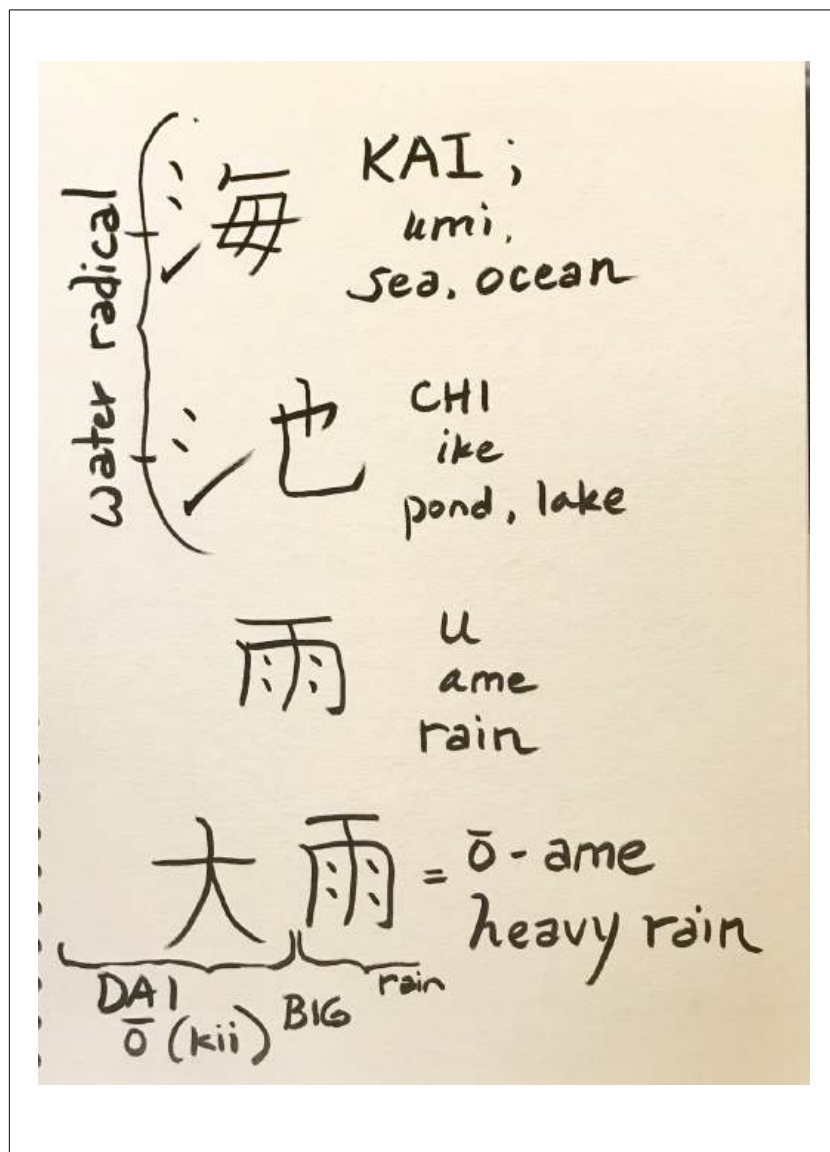 water radical
海 KAI;
umi,
sea, ocean
池 CHI
ike
pond, lake
雨 U
ame
rain
大雨 = ō-ame
heavy rain
DAI BIG rain
ō (kii)